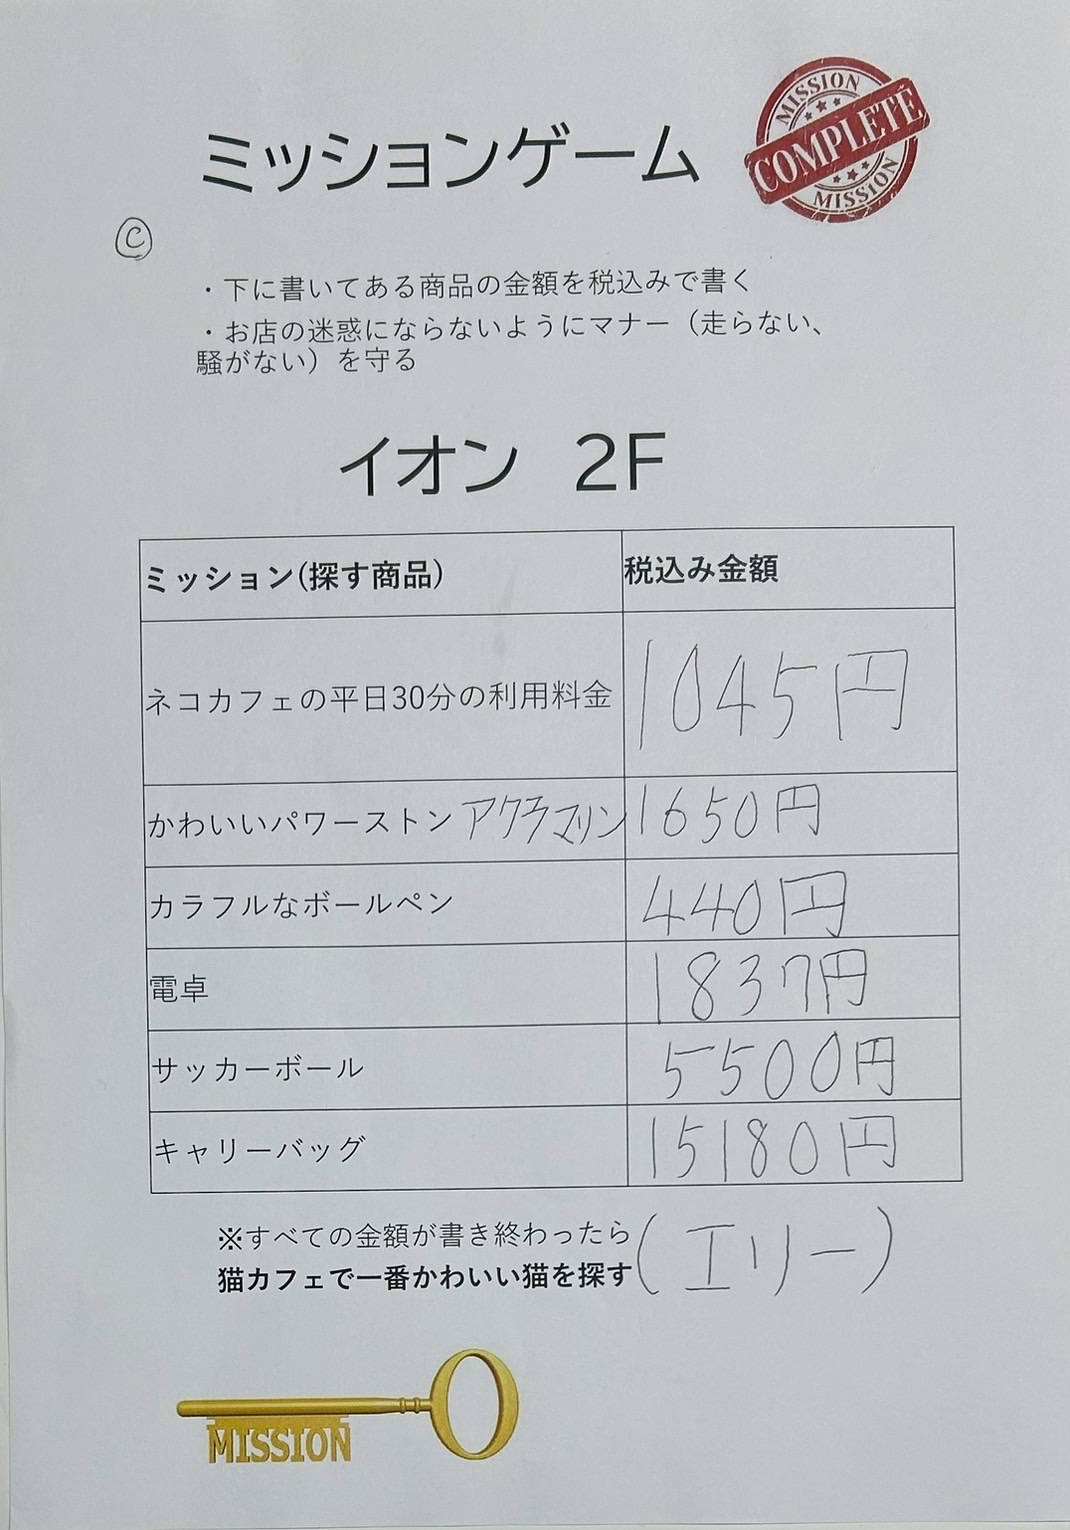 ミッションゲーム
MISSION
COMPLETE
MISSION
C
・下に書いてある商品の金額を税込みで書く
・お店の迷惑にならないようにマナー（走らない、
騒がない）を守る
イオン 2F
ミッション(探す商品) 税込み金額
ネコカフェの平日30分の利用料金 1045円
かわいいパワーストン アクアマリン 1650円
カラフルなボールペン 440円
電卓 1837円
サッカーボール 5500円
キャリーバッグ 15180円
※すべての金額が書き終わったら
猫カフェで一番かわいい猫を探す (エリー)
MISSION